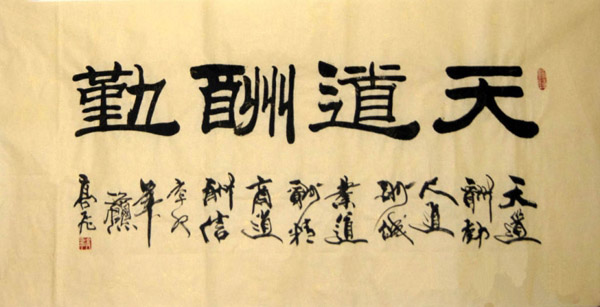 天道酬勤
天道
酬勤
人道
酬誠
業道
酬精
商道
酬信
辛卯